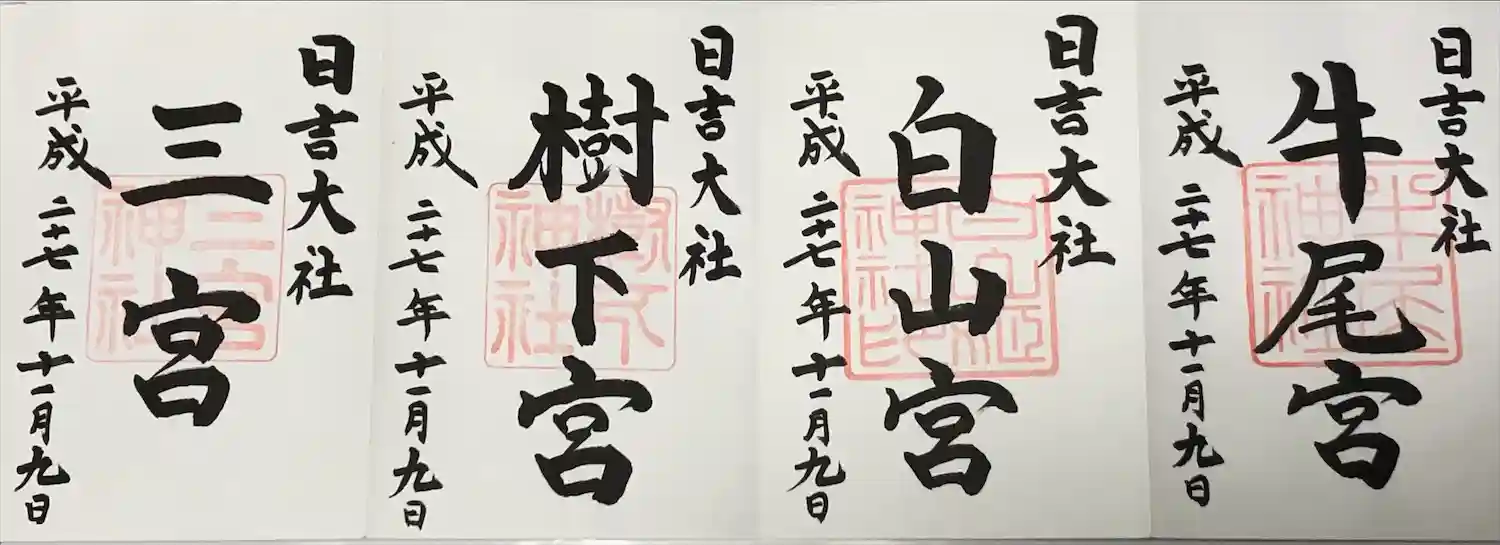 日吉大社
牛尾宮
平成二十七年十一月九日
牛尾
神社
日吉大社
白山宮
平成二十七年十一月九日
日吉大社
樹下宮
平成二十七年十一月九日
樹下
神社
日吉大社
三宮
平成二十七年十一月九日
三宮
神社